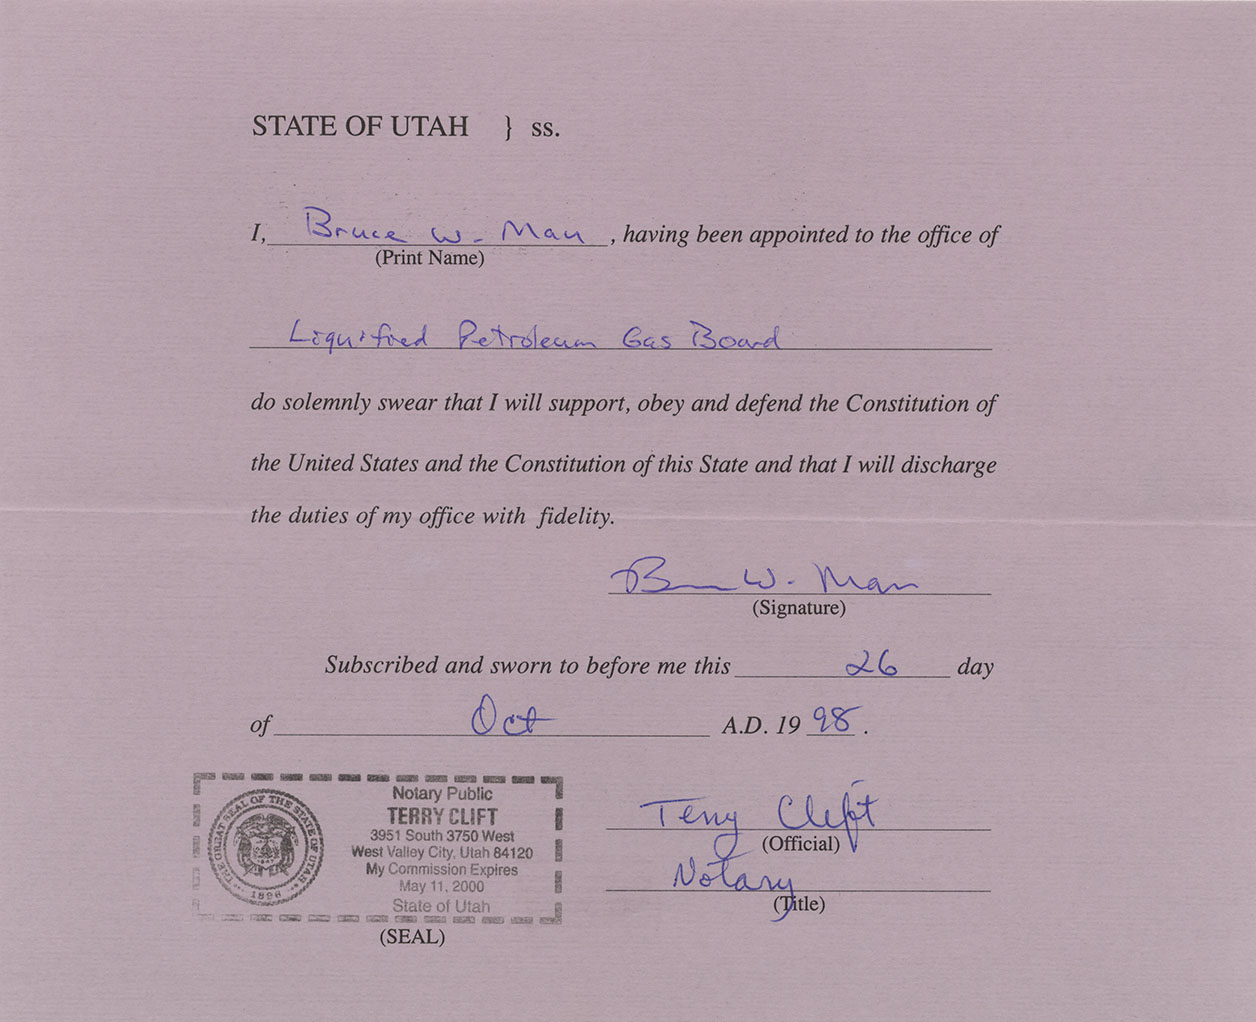 STATE OF UTAH } ss.
I, Bruce W. Man, having been appointed to the office of
(Print Name)
Liquified Petroleum Gas Board
do solemnly swear that I will support, obey and defend the Constitution of
the United States and the Constitution of this State and that I will discharge
the duties of my office with fidelity.
Bruce W. Man
(Signature)
Subscribed and sworn to before me this 26 day
of Oct A.D. 19 98.
Terry Clift
(Official)
Notary
(Title)
THE GREAT SEAL OF THE STATE OF UTAH
1896
Notary Public
TERRY CLIFT
3951 South 3750 West
West Valley City, Utah 84120
My Commission Expires
May 11, 2000
State of Utah
(SEAL)